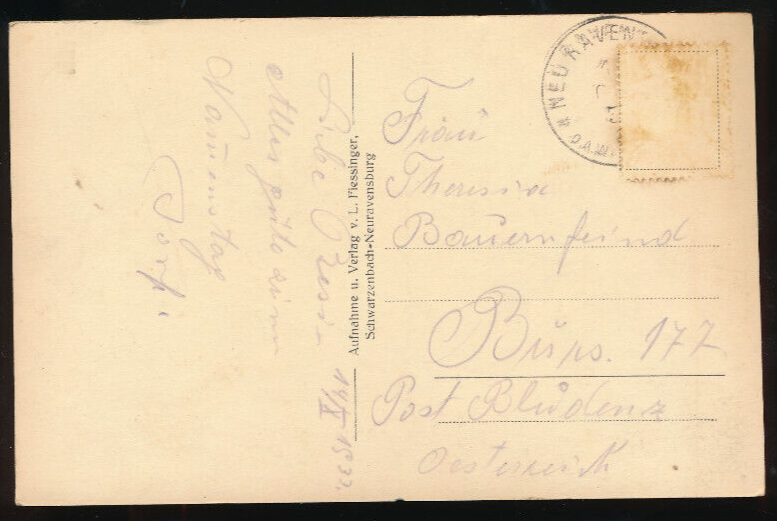 NEURAVEN
Frau
Theresia
Bauernfeind
Bürs. 177
Post Bludenz
Oesterreich
Aufnahme u. Verlag v. L. Fiessinger,
Schwarzenbach-Neuravensburg
14/X 1933.
Liebe Resi
Alles gute zum
Namenstag